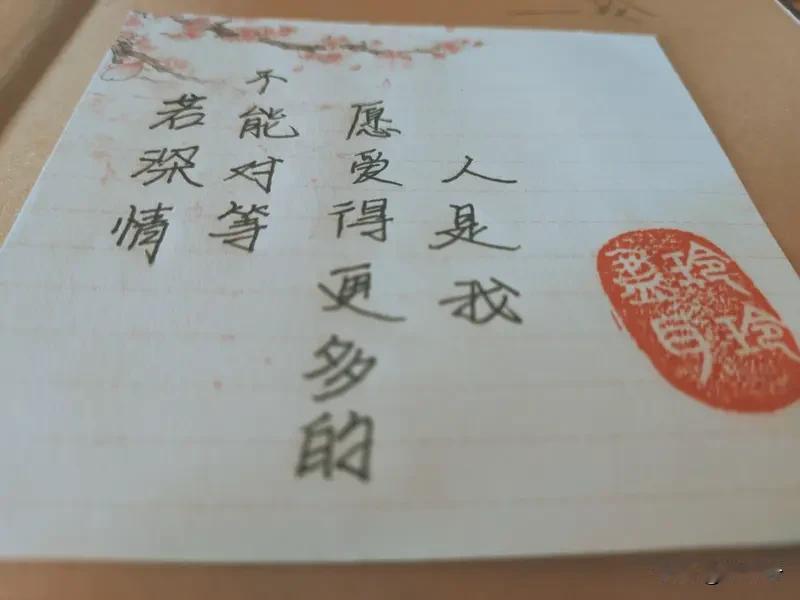 若深情
不能对等
愿爱得更多的
人是我